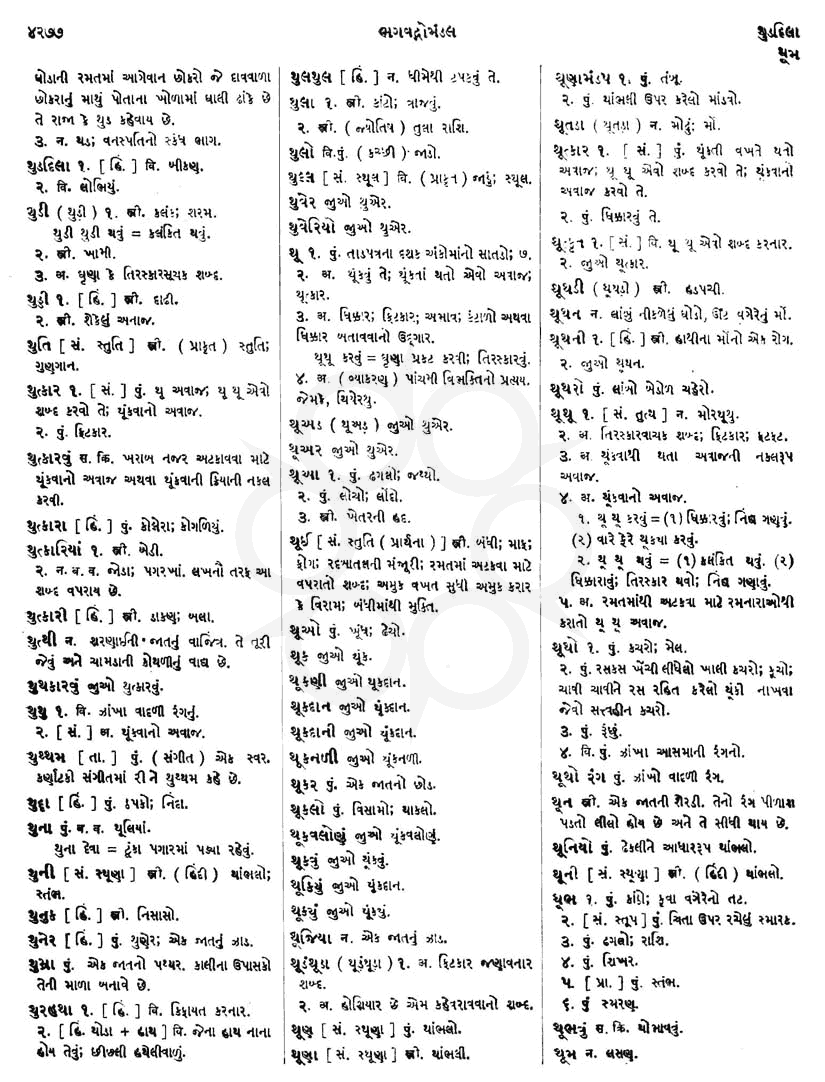 ૪૨૭૭
ભગવદ્ગોમંડલ
થુડદિલા
થૂમ
ઘોડાની રમતમાં આગેવાન છોકરો જે દાવવાળા
છોકરાનું માથું પોતાના ખોળામાં ઘાલી ઢાંકે છે
તે રાજા કે થુડ કહેવાય છે.
૩. ન. થડ; વનસ્પતિનો સ્કંધ ભાગ.
થુડદિલા ૧. [ હિં. ] વિ. બીકણ.
૨. વિ. લોભિયું.
થુડી ( થુડી઼ ) ૧. સ્ત્રી. કલંક; શરમ.
થુડી થુડી થવું = કલંકિત થવું.
૨. સ્ત્રી. ખામી.
૩. અ. ઘૃણા કે તિરસ્કારસૂચક શબ્દ.
થુડ્ડી ૧. [ હિં. ] સ્ત્રી. દાઢી.
૨. સ્ત્રી. શેકેલું અનાજ.
થુતિ [ સં. સ્તુતિ ] સ્ત્રી. ( પ્રાકૃત ) સ્તુતિ;
ગુણગાન.
થુત્કાર ૧. [ સં. ] પું. થૂ અવાજ; થૂ થૂ એવો
શબ્દ કરવો તે; થૂંકવાનો અવાજ.
૨. પું. ફિટકાર.
થુત્કારવું સ. ક્રિ. ખરાબ નજર અટકાવવા માટે
થૂંકવાનો અવાજ અથવા થૂંકવાની ક્રિયાની નકલ
કરવી.
થુત્કારા [ હિં. ] પું. કોલેરા; કોગળિયું.
થુત્કારિયાં ૧. સ્ત્રી. એડી.
૨. ન. બ. વ. જોડા; પગરખાં. લખનૌ તરફ આ
શબ્દ વપરાય છે.
થુત્કારી [ હિં. ] સ્ત્રી. ડાકણ; બલા.
થુત્થી ન. શરણાઈની જાતનું વાજિંત્ર. તે તૂરી
જેવું અને ચામડાની કોથળીનું વાદ્ય છે.
થુથકારવું જીઓ થુત્કારવું.
થુથુ ૧. વિ. ઝાંખા વાદળી રંગનું.
૨. [ સં. ] અ. થૂંકવાનો અવાજ.
થુથ્થમ [ તા. ] પું. ( સંગીત ) એક સ્વર.
કર્ણાટકી સંગીતમાં રી ને થુથ્થમ કહે છે.
થુદ્દા [ હિં. ] પું. ઠપકો; નિંદા.
થુના પું. બ. વ. થૂલિયાં.
થુના દેવા = ટૂંકા પગારમાં પડ્યા રહેવું.
થુની [ સં. સ્થૂણા ] સ્ત્રી. ( હિંદી ) થાંભલો;
સ્તંભ.
થુનુક [ હિં. ] સ્ત્રી. નિસાસો.
થુનેર [ હિં. ] પું. થુણેર; એક જાતનું ઝાડ.
થુમ્રા પું. એક જાતનો પથ્થર. કાલીના ઉપાસકો
તેની માળા બનાવે છે.
થુરહથા ૧. [ હિં. ] વિ. કિફાયત કરનાર.
૨. [ હિં. થોડા + હાથ ] વિ. જેના હાથ નાના
હોય તેવું; છીછલી હથેલીવાળું.
થુલથુલ [ હિં. ] ન. ધીમેથી ટપકવું તે.
થુલા ૧. સ્ત્રી. કાંટો; ત્રાજવું.
૨. સ્ત્રી. ( જ્યોતિષ ) તુલા રાશિ.
થુલો વિ.પું. ( કચ્છી ) જાડો.
થુલ્લ [ સં. સ્થૂલ ] વિ. ( પ્રાકૃત ) જાડું; સ્થૂલ.
થુવેર જીઓ થુએર.
થુવેરિયો જીઓ થુએર.
થૂ ૧. પું. તાડપત્રના દશક અંકોમાંનો સાતડો; ૭.
૨. અ. થૂંકવું તે; થૂંકતાં થતો એવો અવાજ;
થૂત્કાર.
૩. અ. ધિક્કાર; ફિટકાર; અભાવ; કંટાળો અથવા
ધિક્કાર બતાવવાનો ઉદ્ગાર.
થૂથૂ કરવું = ઘૃણા પ્રકટ કરવી; તિરસ્કારવું.
૪. અ. ( વ્યાકરણ ) પાંચમી વિભક્તિનો પ્રત્યય.
જેમકે, થિયેરથુ.
થૂઅડ ( થૂઅડ઼ ) જીઓ થુએર.
થૂઅર જીઓ થુએર.
થૂઆ ૧. પું. ઢગલો; જથ્થો.
૨. પું. લોચો; લોંદો.
૩. સ્ત્રી. ખેતરની હદ.
થૂઈ [ સં. સ્તુતિ ( પ્રાર્થના ) ] સ્ત્રી. બંધી; માફ;
ફોગ; રદબાતલની મંજૂરી; રમતમાં અટકવા માટે
વપરાતો શબ્દ; અમુક વખત સુધી અમુક કરાર
કે વિરામ; બંધીમાંથી મુક્તિ.
થૂઓ પું. ખૂંધ; ઢેચો.
થૂક જીઓ થૂંક.
થૂકણી જીઓ થૂકદાન.
થૂકદાન જીઓ થૂંકદાન.
થૂકદાની જીઓ થૂંકદાન.
થૂકનળી જીઓ થૂંકનળી.
થૂકર પું. એક જાતનો છોડ.
થૂકલો પું. વિસામો; થાકલો.
થૂકવલોણું જીઓ થૂંકવલોણું.
થૂકવું જીઓ થૂંકવું.
થૂકિયું જીઓ થૂંકદાન.
થૂક્યું જીઓ થૂંક્યું.
થૂજિયા ન. એક જાતનું ઝાડ.
થૂડંથૂડા ( થૂડંથૂડા઼ ) ૧. અ. ફિટકાર જણાવનાર
શબ્દ.
૨. અ. હોશિયાર છે એમ કહેવરાવવાનો શબ્દ.
થૂણ [ સં. સ્થૂણા ] પું. થાંભલો.
થૂણા [ સં. સ્થૂણા ] સ્ત્રી. થાંભલી.
થૂણામંડપ ૧. પું. તંબૂ.
૨. પું. થાંભલી ઉપર કરેલો માંડવો.
થૂતડા ( થૂતડ઼ા ) ન. મોઢું; મોં.
થૂત્કાર ૧. [ સં. ] પું. થૂંકતી વખતે થતો
અવાજ; થૂ થૂ એવો શબ્દ કરવો તે; થૂંકવાનો
અવાજ કરવો તે.
૨. પું. ધિક્કારવું તે.
થૂત્કૃત ૧. [ સં. ] વિ. થૂ થૂ એવો શબ્દ કરનાર.
૨. જીઓ થૂત્કાર.
થૂથડી ( થૂથડી઼ ) સ્ત્રી. હડપચી.
થૂથન ન. લાંબું નીકળેલું ઘોડો, ઊંટ વગેરેનું મોં.
થૂથની ૧. [ હિં. ] સ્ત્રી. હાથીના મોંનો એક રોગ.
૨. જીઓ થૂથન.
થૂથરો પું. લાંબો બેડોળ ચહેરો.
થૂથૂ ૧. [ સં. તુત્ય ] ન. મોરથૂથુ.
૨. અ. તિરસ્કારવાચક શબ્દ; ફિટકાર; ફટફટ.
૩. અ. થૂંકવાથી થતા અવાજની નકલરૂપ
અવાજ.
૪. અ. થૂંકવાનો અવાજ.
૧. થૂ થૂ કરવું = (૧) ધિક્કારવું; નિંદ્ય ગણવું.
(૨) વારે ફેરે થૂક્યા કરવું.
૨. થૂ થૂ થવું = (૧) કલંકિત થવું. (૨)
ધિક્કારાવું; તિરસ્કાર થવો; નિંદ્ય ગણાવું.
૫. અ. રમતમાંથી અટકવા માટે રમનારાઓથી
કરાતો થૂ થૂ અવાજ.
થૂથો ૧. પું. કચરો; મેલ.
૨. પું. રસકસ ખેંચી લીધેલો ખાલી કચરો; કૂચો;
ચાવી ચાવીને રસ રહિત કરેલો થૂંકી નાખવા
જેવો સત્ત્વહીન કચરો.
૩. પું. રૂંછું.
૪. વિ. પું. ઝાંખા આસમાની રંગનો.
થૂથો રંગ પું. ઝાંખો વાદળી રંગ.
થૂન સ્ત્રી. એક જાતની શેરડી. તેનો રંગ પીળાશ
પડતો લીલો હોય છે અને તે સીધી થાય છે.
થૂનિયો પું. ટેકલીને આધારરૂપ થાંભલો.
થૂની [ સં. સ્થૂણા ] સ્ત્રી. ( હિંદી ) થાંભલો.
થૂભ ૧. પું. કાંઠો; કૂવા વગેરેનો તટ.
૨. [ સં. સ્તૂપ ] પું. ચિતા ઉપર રચેલું સ્મારક.
૩. પું. ઢગલો; રાશિ.
૪. પું. શિખર.
૫. [ પ્રા. ] પું. સ્તંભ.
૬. પું. સ્મરણ.
થૂભવું સ. ક્રિ. થોભાવવું.
થૂમ ન. લસણ.